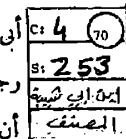 أبي
C: 4 70
S: 253
ابن أبي شيبة
رجـ
المصنف
أن